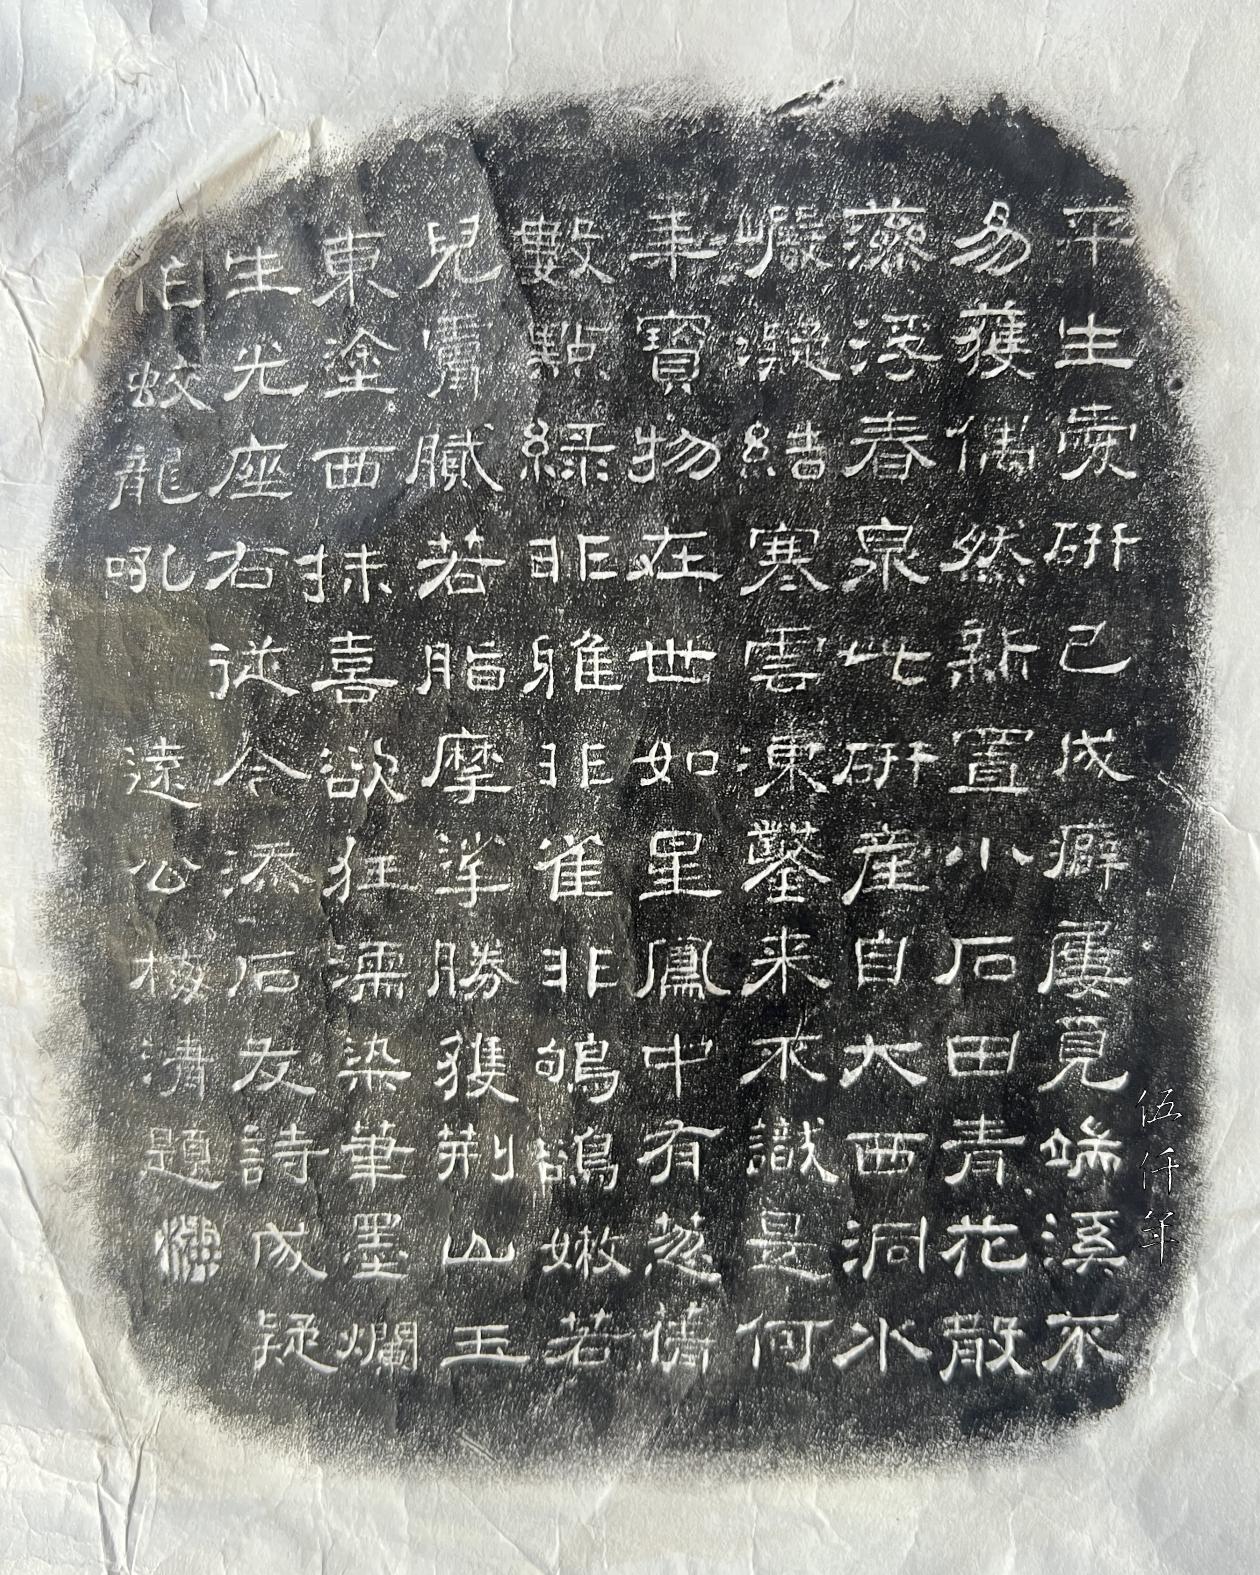 平生愛研己成癖屢覓端溪不
易獲偶然新置小石田青花散
藻浮春泉此研産自大西洞水
巖凝結寒雲凍鑿来不識是何
年寶物在世如星鳳中有葱蒨
數點綠非雅非雀非鴝鵒嫩若
兒膚膩若脂摩挲勝獲荆山玉
東塗西抹喜欲狂濡染筆墨爛
生光座右従今添石友詩成疑
怕蛟龍吼 遠公梅清題
伍仟年